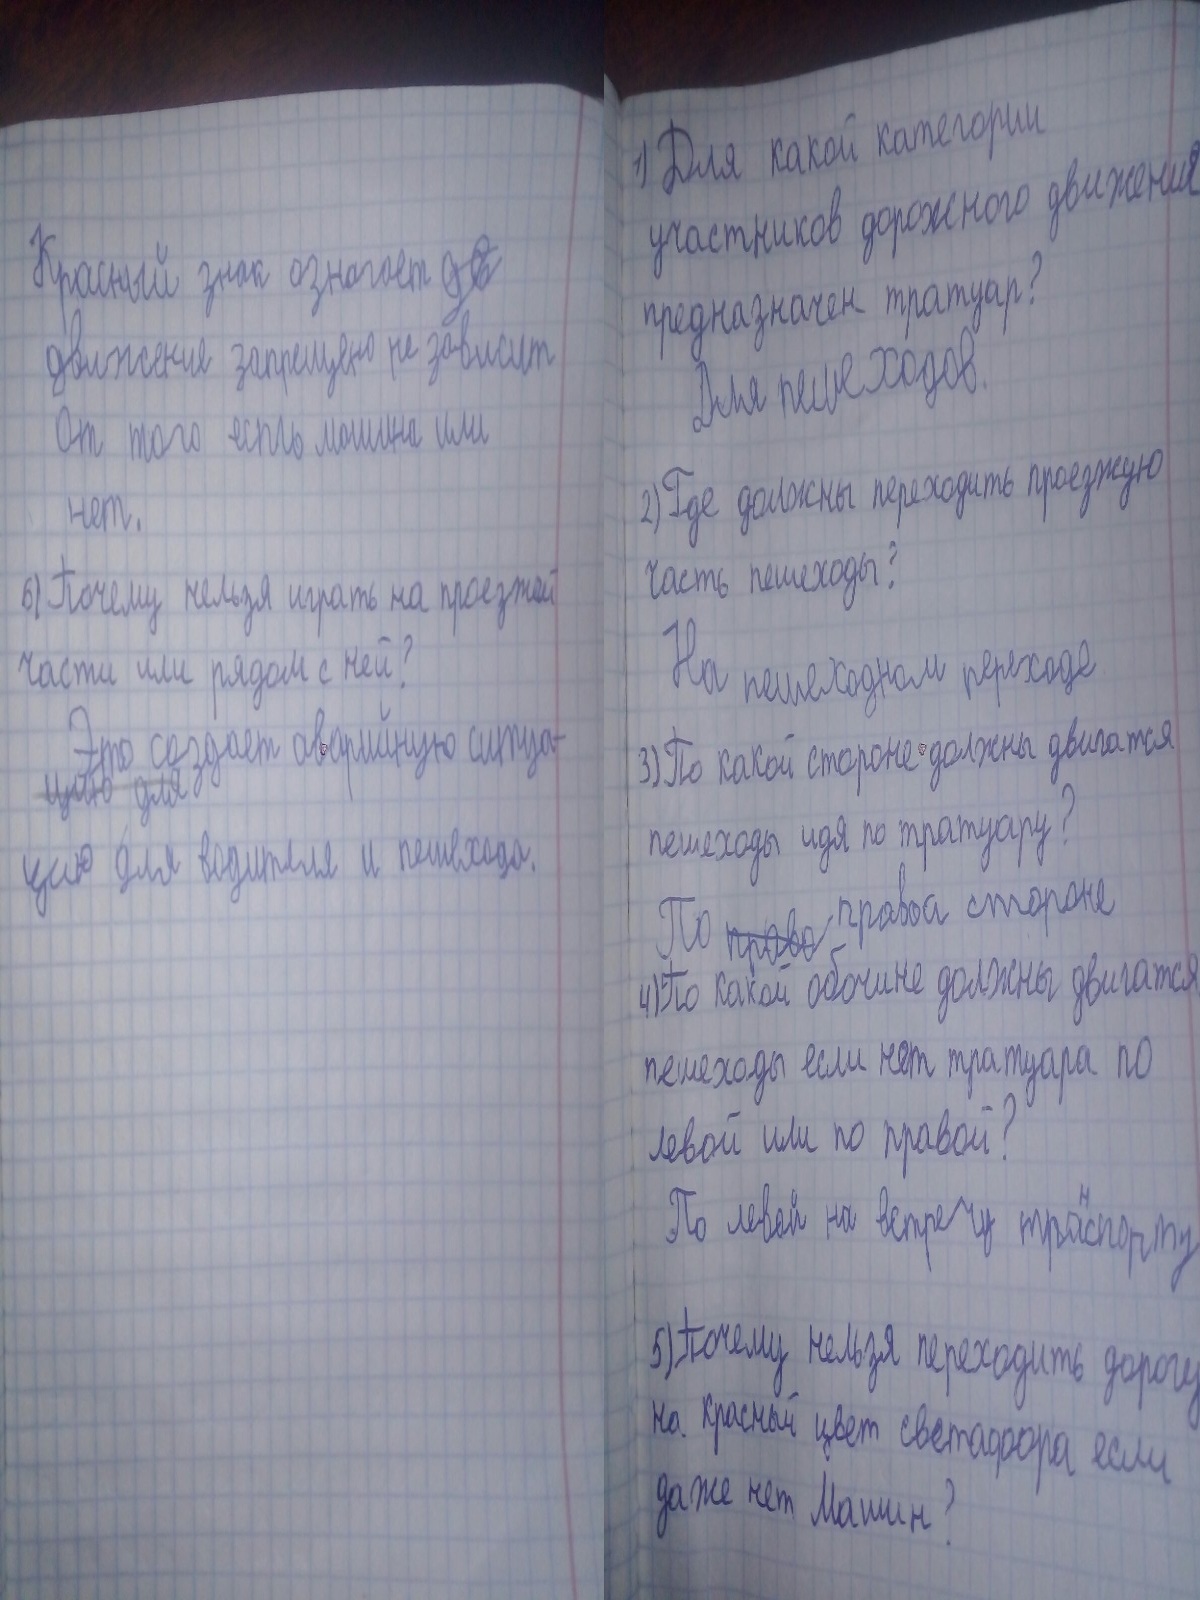 1) Для какой категории
участников дорожного движения
предназначен тратуар?
Для пешеходов.
2) Где должны переходить проезжую
часть пешеходы?
На пешеходном переходе
3) По какой стороне должны двигатся
пешеходы идя по тратуару?
По право правой стороне
4) По какой обочине должны двигатся
пешеходы если нет тратуара по
левой или по правой?
По левой на встречу транспорту
5) Почему нельзя переходить дорогу
на красный цвет светафора если
даже нет Машин?
Красный знак означает
движение запрещено не зависит
От того есть машина или
нет.
6) Почему нельзя играть на проезжей
части или рядом с ней?
Это создает аварийную ситуа-
цию для
цию для водителя и пешехода.